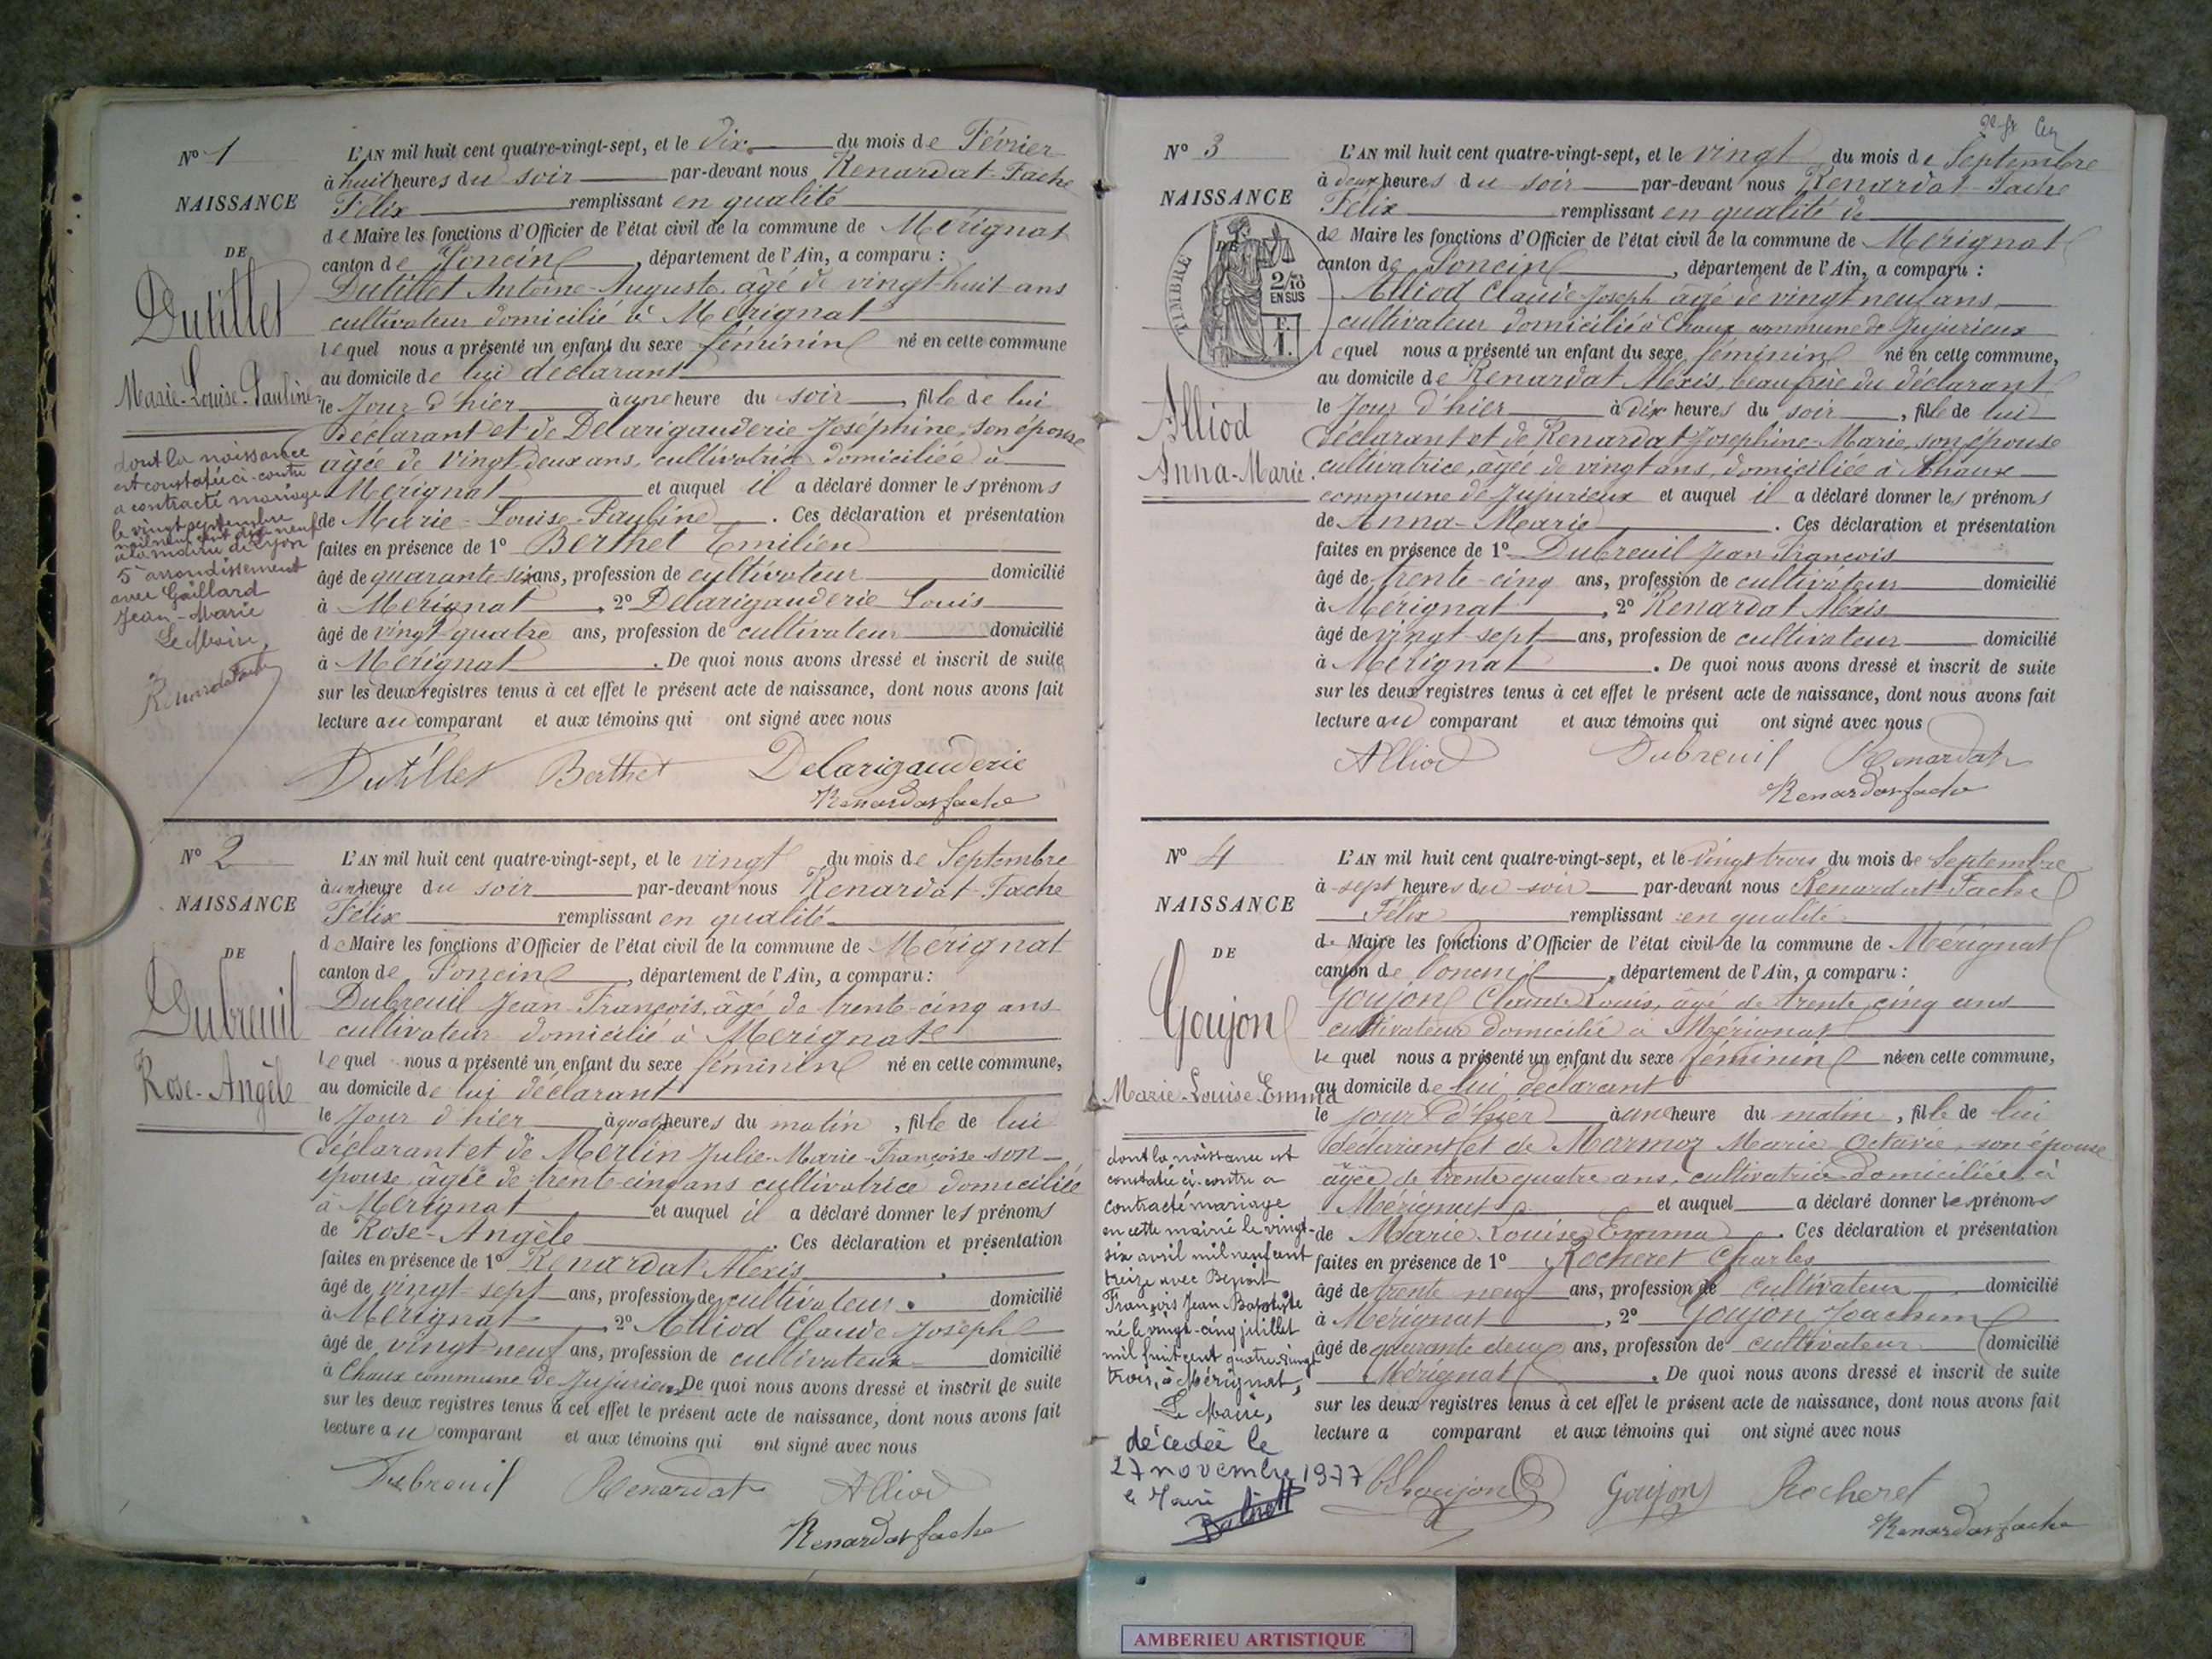 N° 1
NAISSANCE
DE
Dutillet
Marie-Louise-Pauline
dont la naissance
est constatée ci-contre
a contracté mariage
le vingt septembre
mil neuf cent dix neuf
à la mairie de Lyon
5e arrondissement
avec Gaillard
Jean-Marie
Le Maire,
Renardat Fache
L'AN mil huit cent quatre-vingt-sept, et le dix du mois de Février
à huit heures du soir par-devant nous Renardat-Fache
Félix remplissant en qualité
de Maire les fonctions d'Officier de l'état civil de la commune de Mérignat
canton de Poncin, département de l'Ain, a comparu :
Dutillet Antoine-Auguste, âgé de vingt-huit ans
cultivateur domicilié à Mérignat
lequel nous a présenté un enfant du sexe féminin né en cette commune
au domicile de lui déclarant
le Jour d'hier à une heure du soir, fille de lui
déclarant et de Delarigauderie Joséphine, son épouse
âgée de vingt-deux ans, cultivatrice domiciliée à
Mérignat et auquel il a déclaré donner les prénoms
de Marie-Louise-Pauline. Ces déclaration et présentation
faites en présence de 1° Berthet Emilien
âgé de quarante-six ans, profession de cultivateur domicilié
à Mérignat, 2° Delarigauderie Louis
âgé de vingt-quatre ans, profession de cultivateur domicilié
à Mérignat. De quoi nous avons dressé et inscrit de suite
sur les deux registres tenus à cet effet le présent acte de naissance, dont nous avons fait
lecture au comparant et aux témoins qui ont signé avec nous
Dutillet Berthet Delarigauderie
Renardat fache
N° 2
NAISSANCE
DE
Dubreuil
Rose-Angèle
L'AN mil huit cent quatre-vingt-sept, et le vingt du mois de Septembre
à une heure du soir par-devant nous Renardat-Fache
Félix remplissant en qualité
de Maire les fonctions d'Officier de l'état civil de la commune de Mérignat
canton de Poncin, département de l'Ain, a comparu :
Dubreuil Jean-François, âgé de trente-cinq ans
cultivateur domicilié à Mérignat
lequel nous a présenté un enfant du sexe féminin né en cette commune,
au domicile de lui déclarant
le Jour d'hier à quatre heures du matin, fille de lui
déclarant et de Merlin Julie-Marie-Françoise son
épouse, âgée de trente-cinq ans cultivatrice domiciliée
à Mérignat et auquel il a déclaré donner les prénoms
de Rose-Angèle. Ces déclaration et présentation
faites en présence de 1° Renardat Alexis
âgé de vingt-sept ans, profession de cultivateur domicilié
à Mérignat, 2° Alliod Claude Joseph
âgé de vingt neuf ans, profession de cultivateur domicilié
à Chaux commune de Jujurieux De quoi nous avons dressé et inscrit de suite
sur les deux registres tenus à cet effet le présent acte de naissance, dont nous avons fait
lecture au comparant et aux témoins qui ont signé avec nous
Dubreuil Renardat Alliod
Renardat fache
N° 3
NAISSANCE
DE
TIMBRE
2/10
EN SUS
F.
1.
Alliod
Anna-Marie.
L'AN mil huit cent quatre-vingt-sept, et le vingt du mois de Septembre
à deux heures du soir par-devant nous Renardat-Fache
Félix remplissant en qualité de
de Maire les fonctions d'Officier de l'état civil de la commune de Mérignat
canton de Poncin, département de l'Ain, a comparu :
Alliod, Claude-Joseph âgé de vingt neuf ans,
cultivateur domicilié à Chaux commune de Jujurieux
lequel nous a présenté un enfant du sexe féminin né en cette commune,
au domicile de Renardat Alexis, beau frère du déclarant
le Jour d'hier à dix heures du soir, fille de lui
déclarant et de Renardat Joséphine-Marie, son épouse
cultivatrice, âgée de vingt ans, domiciliée à Chaux
commune de Jujurieux et auquel il a déclaré donner les prénoms
de Anna-Marie. Ces déclaration et présentation
faites en présence de 1° Dubreuil Jean François
âgé de trente-cinq ans, profession de cultivateur domicilié
à Mérignat, 2° Renardat Alexis
âgé de vingt-sept ans, profession de cultivateur domicilié
à Mérignat. De quoi nous avons dressé et inscrit de suite
sur les deux registres tenus à cet effet le présent acte de naissance, dont nous avons fait
lecture au comparant et aux témoins qui ont signé avec nous
Alliod Dubreuil Renardat
Renardat fache
N° 4
NAISSANCE
DE
Goujon
Marie-Louise-Emma
dont la naissance est
constatée ci-contre a
contracté mariage
en cette mairie le vingt-
six avril mil neuf cent
treize avec Benoit
François Jean-Baptiste
né le vingt-cinq juillet
mil huit cent quatre vingt
trois, à Mérignat,
Le Maire,
décédée le
27 novembre 1977
le Maire
L'AN mil huit cent quatre-vingt-sept, et le vingt trois du mois de Septembre
à sept heures du soir par-devant nous Renardat-Fache
Félix remplissant en qualité
de Maire les fonctions d'Officier de l'état civil de la commune de Mérignat
canton de Poncin, département de l'Ain, a comparu :
Goujon Claude Louis, âgé de trente cinq ans
cultivateur domicilié à Mérignat
lequel nous a présenté un enfant du sexe féminin née en cette commune,
au domicile de lui déclarant
le jour d'hier à une heure du matin, fille de lui
déclarant et de Marmoz Marie Octavie, son épouse
âgée de trente quatre ans, cultivatrice domiciliée à
Mérignat et auquel a déclaré donner les prénoms
de Marie Louise Emma. Ces déclaration et présentation
faites en présence de 1° Rocheret Charles
âgé de trente neuf ans, profession de cultivateur domicilié
à Mérignat, 2° Goujon Joachim
âgé de quarante deux ans, profession de cultivateur domicilié
Mérignat. De quoi nous avons dressé et inscrit de suite
sur les deux registres tenus à cet effet le présent acte de naissance, dont nous avons fait
lecture a comparant et aux témoins qui ont signé avec nous
Goujon Goujon Rocheret
Renardat fache
AMBERIEU ARTISTIQUE